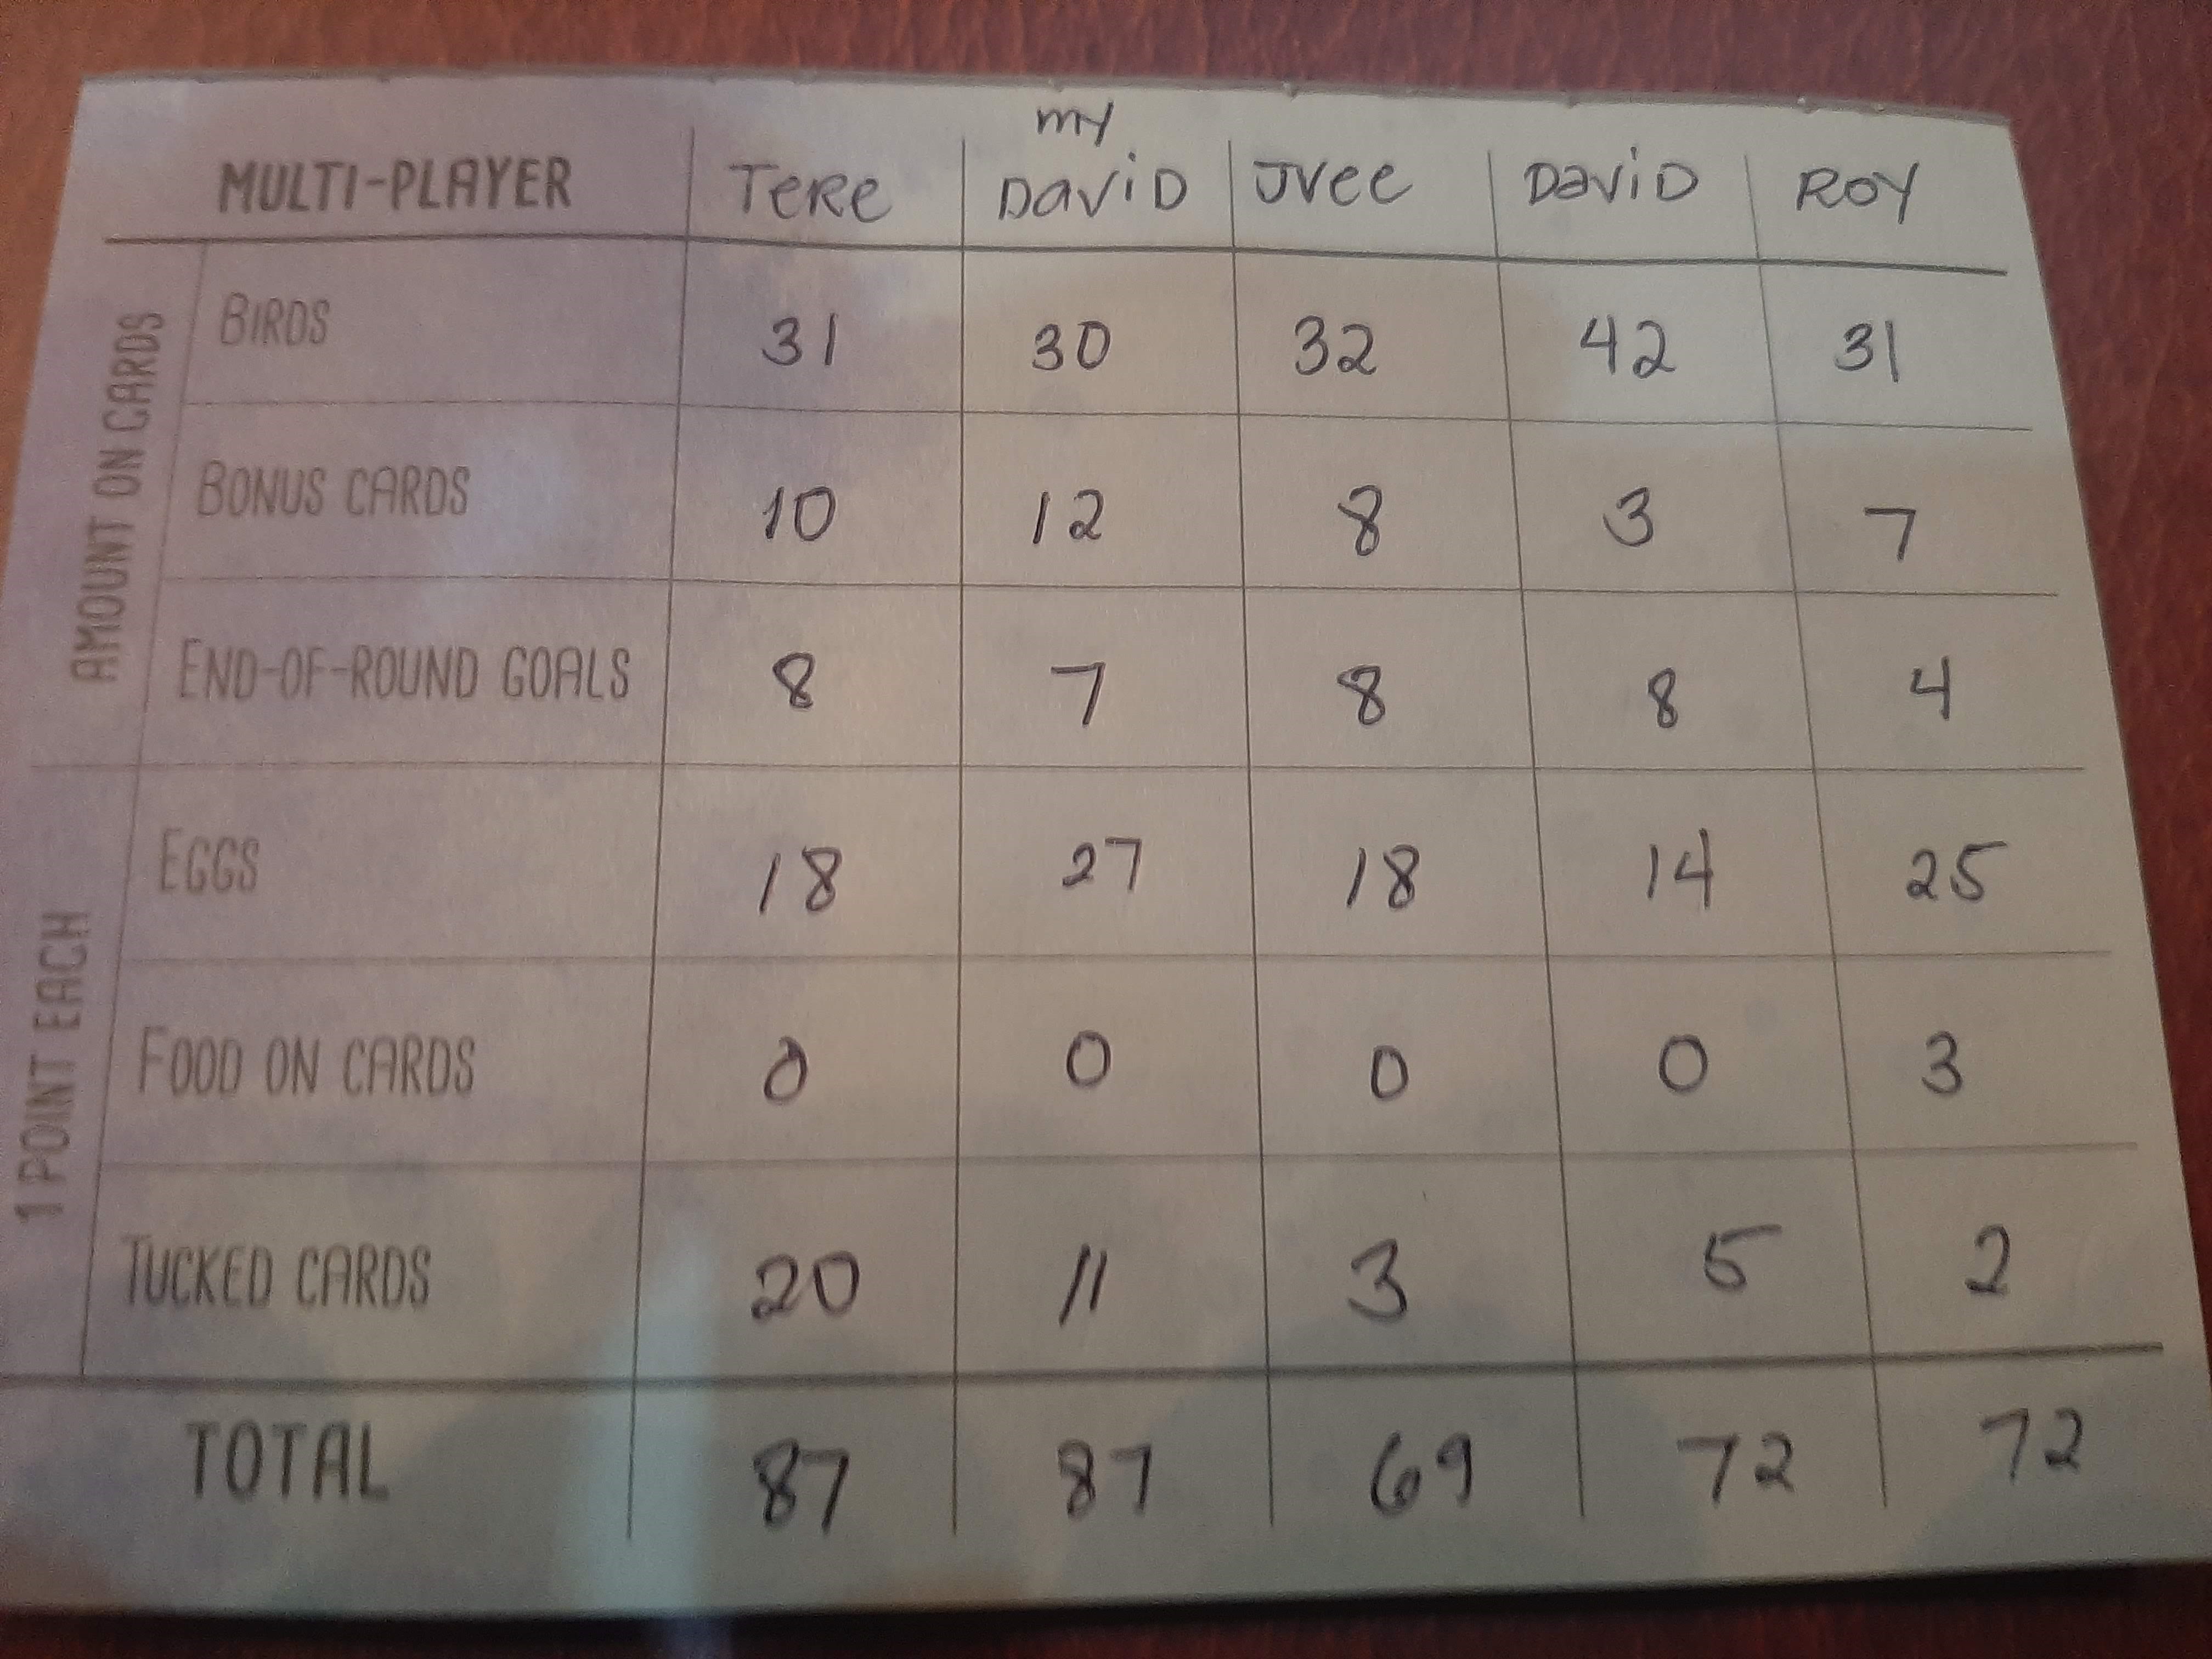 my
MULTI-PLAYER TeRe DaviD Jvee DaviD ROY
AMOUNT ON CARDS
BIRDS 31 30 32 42 31
BONUS CARDS 10 12 8 3 7
END-OF-ROUND GOALS 8 7 8 8 4
1 POINT EACH
EGGS 18 27 18 14 25
FOOD ON CARDS 0 0 0 0 3
TUCKED CARDS 20 11 3 5 2
TOTAL 87 87 69 72 72